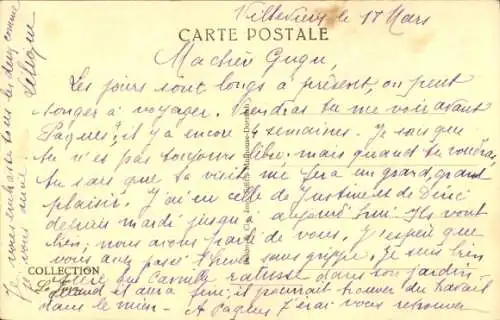 Villevieux le 17 Mars
CARTE POSTALE
Ma chère Gugu,
Les jours sont longs à présent, on peut
songer à voyager. Viendras tu me voir avant
Pâques?, il y a encore 4 semaines. Je sais que
tu n'es pas toujours libre, mais quand tu voudras,
tu sais que ta visite me fera un grand, grand
plaisir. J'ai eu celle de Justine et de
depuis mardi jusqu'à aujourd'hui. Ils vont
bien, nous avons parlé de vous. J'espère que
vous avez passé l'hiver sans grippe. Je suis bien
que Camille ratisse dans son jardin,
quand il aura fini, il pourrait trouver du travail
dans le mien. A Pâques j'irai vous retrouver
COLLECTION
Je vous embrasse tous les deux comme
je vous aime.